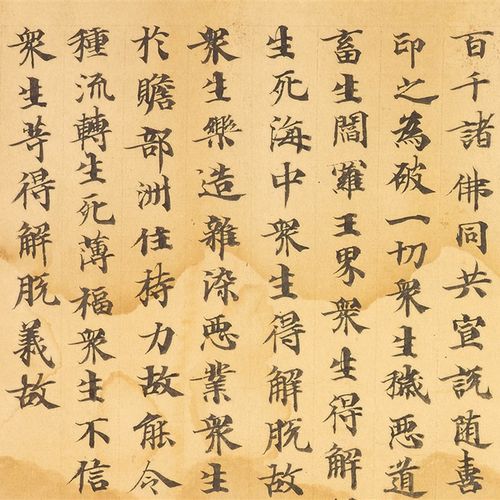 百千諸佛同共宣説随喜
印之為破一切衆生穢悪道
畜生閻羅王界衆生得解
生死海中衆生得解脱故
衆生樂造雜染悪業衆生
於贍部洲住持力故能令
種流轉生死薄福衆生不信
衆生等得解脱義故